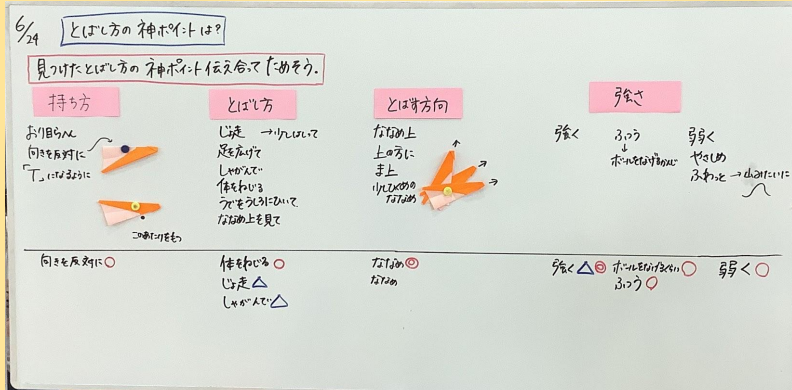 6/24
とばし方の神ポイントは?
見つけたとばし方の神ポイント伝え合ってためそう。
持ち方
おり目らへん
向きを反対に
「T」になるように
このあたりをもつ
とばし方
じょ走 →少しはしって
足を広げて
しゃがんで
体をねじる
うでをうしろにひいて
ななめ上を見て
とばす方向
ななめ上
上の方に
ま上
少しひくめの
ななめ
強さ
強く
ふつう
↓
ボールをなげるかんじ
弱く
やさしめ
ふわっと → 山みたいに
向きを反対に○
体をねじる○
じょ走△
しゃがんで△
ななめ◎
ななめ
強く△◎
ボールをなげるくらい○
ふつう○
弱く○